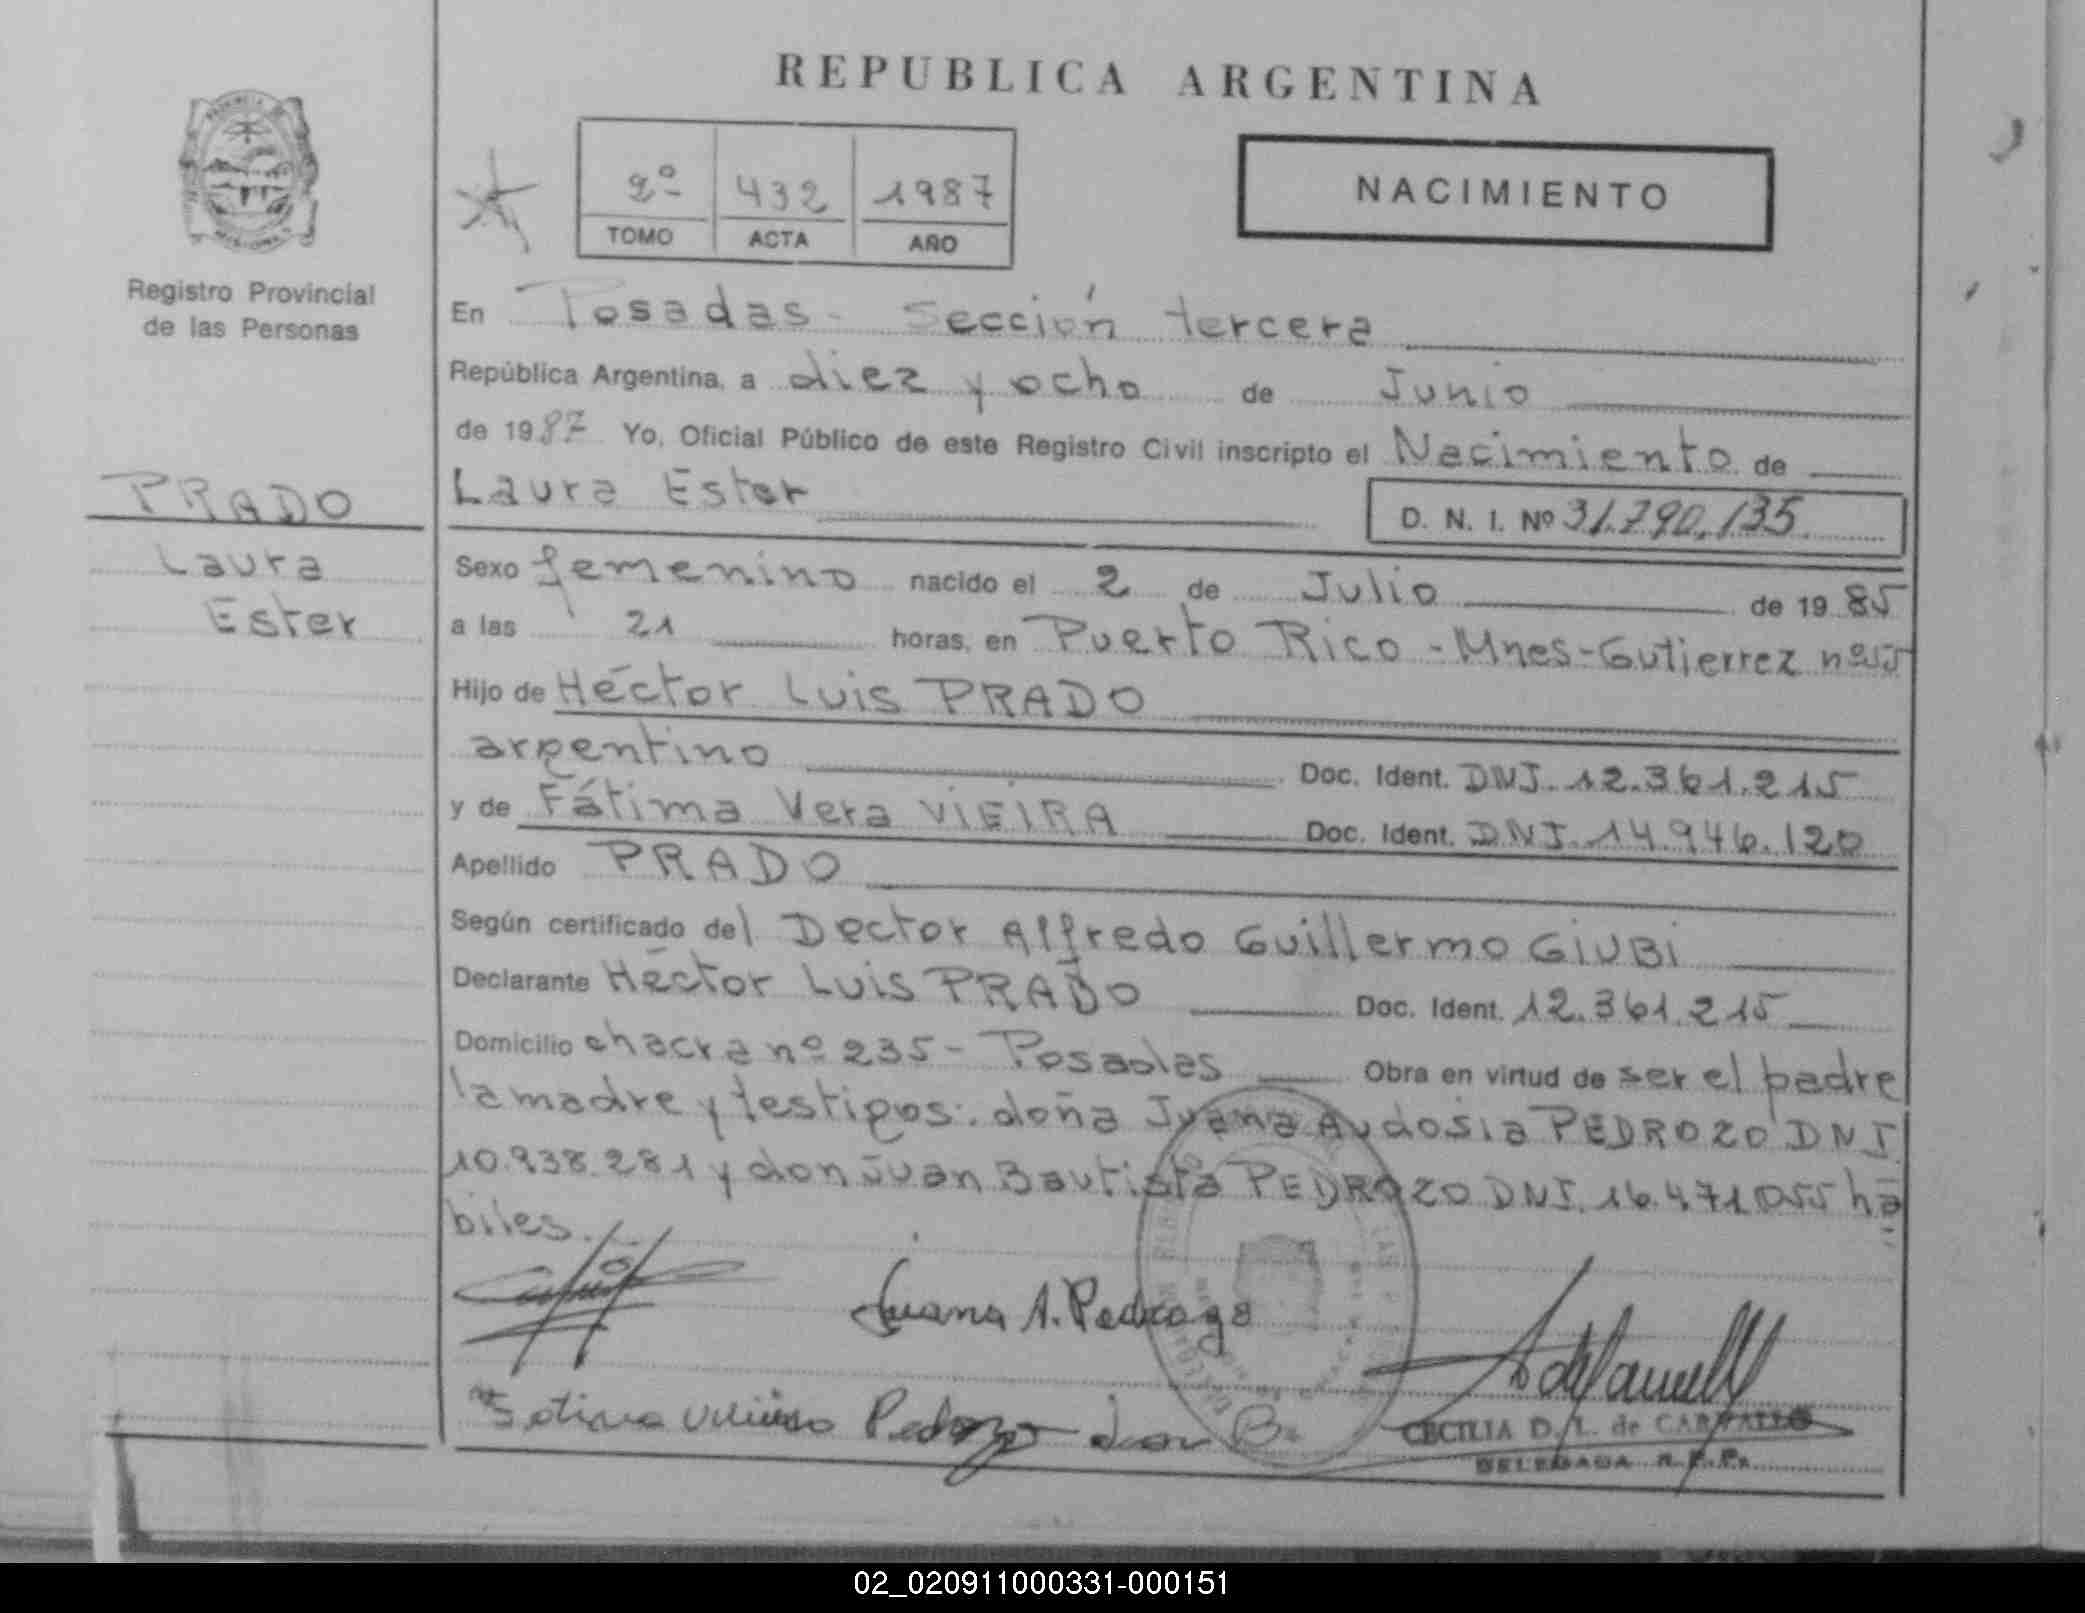 REPUBLICA ARGENTINA
2º 432 1987
TOMO ACTA AÑO
NACIMIENTO
Registro Provincial
de las Personas
PRADO
Laura
Ester
En Posadas - Sección tercera
República Argentina, a diez y ocho de Junio
de 1987 Yo, Oficial Público de este Registro Civil inscripto el Nacimiento de
Laura Ester
D. N. I. Nº 31.790.135
Sexo femenino nacido el 2 de Julio de 1985
a las 21 horas, en Puerto Rico - Mnes - Gutierrez nº
Hijo de Héctor Luis PRADO
argentino Doc. Ident. DNI. 12.361.215
y de Fátima Vera VIEIRA Doc. Ident. DNI. 14.946.120
Apellido PRADO
Según certificado del Doctor Alfredo Guillermo GIUBI
Declarante Héctor Luis PRADO Doc. Ident. 12.361.215
Domicilio chacra nº 235 - Posadas Obra en virtud de ser el padre
la madre y testigos: doña Juana Audosia PEDROZO DNI
10.938.281 y don Juan Bautista PEDROZO DNI. 16.471055 há
biles.
Juana A. Pedrozo
Pedrozo Juan B.
CECILIA D. L. de CARVALLO
DELEGADA R.P.P.
02_020911000331-000151